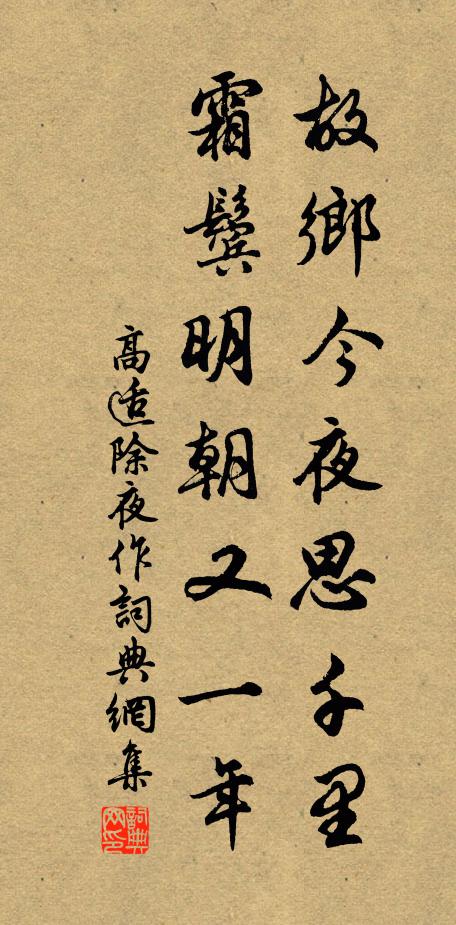 故鄉今夜思千里
霜鬢明朝又一年
高适除夜作詞典網集
詞典網印